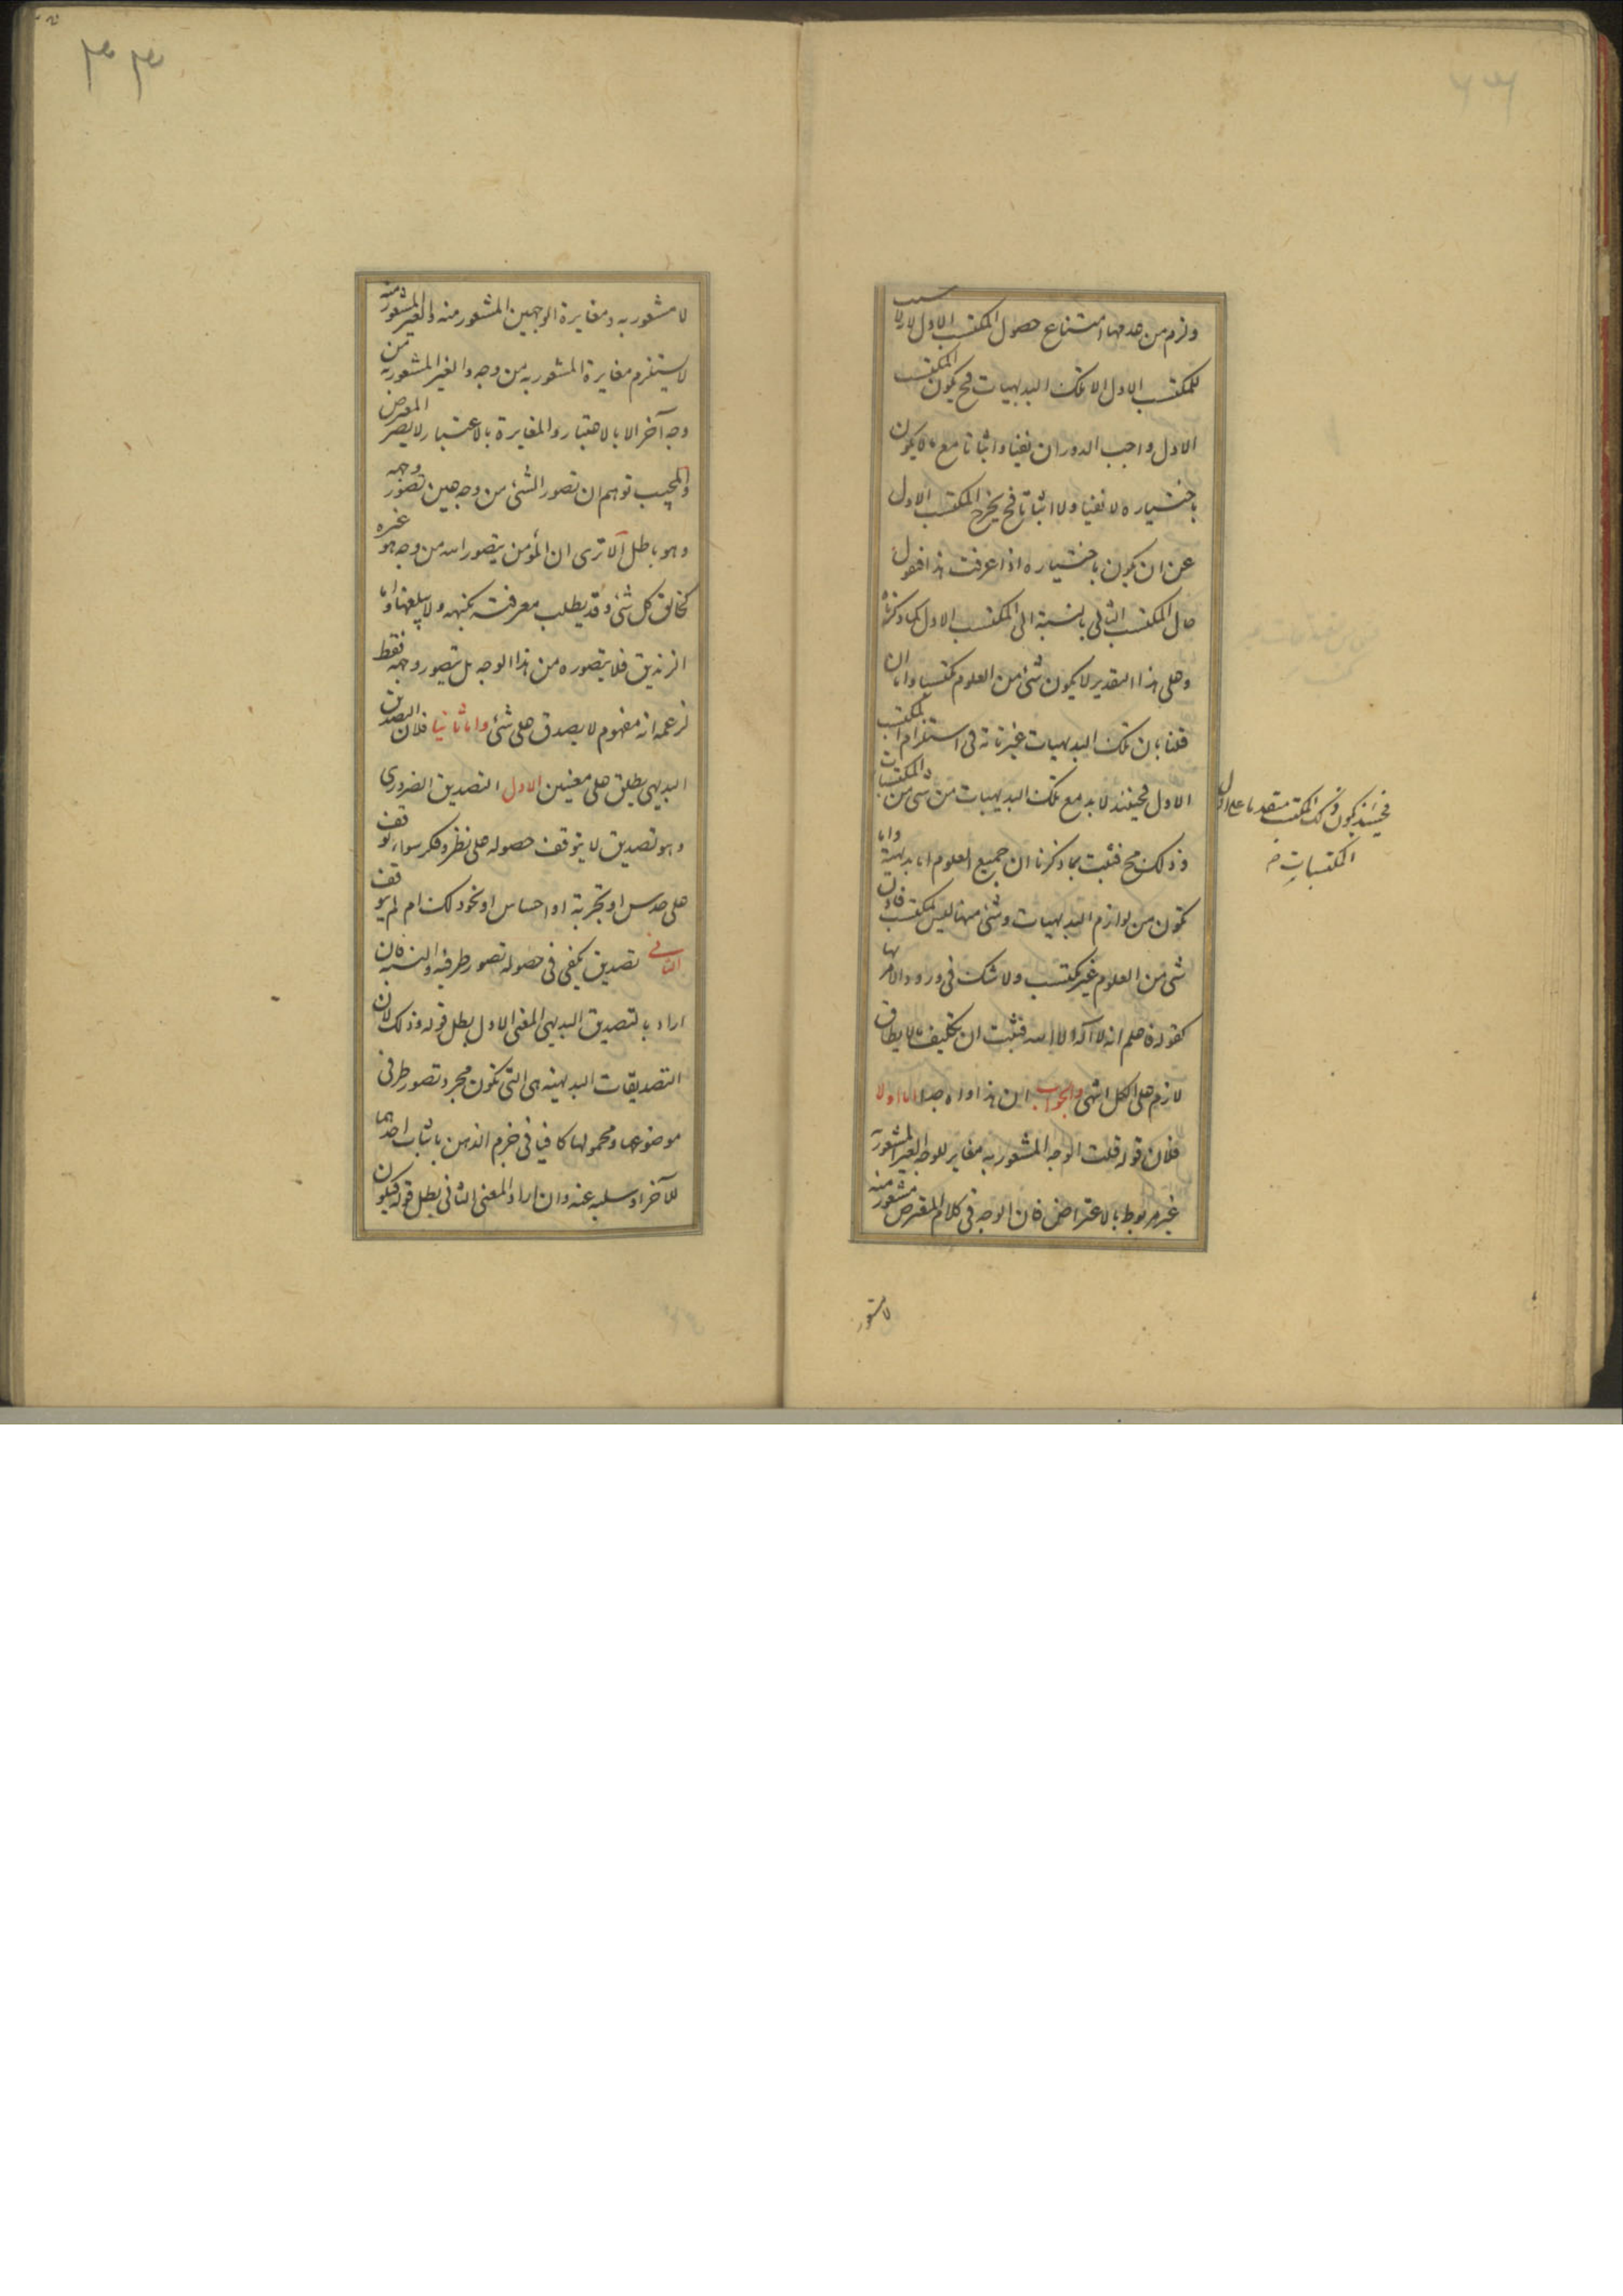 ولزم من عدمها امتناع حصول المكتسب الاول لا سبب
للمكتسب الاول الا تلك البديهيات فح يكون المكتسب
الاول واجب الدوران نفيا واثباتا مع ما يكون
باختياره لا نفيا ولا اثباتا فح يخرج المكتسب الاول
عن ان يكون باختياره اذا عرفت هذا فنقول
حال المكتسب الثانى بالنسبة الى المكتسب الاول كما ذكرناه
وعلى هذا التقدير لا يكون شئ من العلوم مكتسبا واما ان
قلنا بان تلك البديهيات غير تامة فى استلزام المكتسب
الاول فحينئذ لا بد مع تلك البديهيات من شئ من المكتسبات
فحينئذ يكون ذلك المكتسب متقدما على اول
المكتسبات
وذلك مح فثبت بما ذكرنا ان جميع العلوم اما بديهية واما
تكون من لوازم البديهيات وشئ منها ليس بمكتسب فاذن
شئ من العلوم غير مكتسب ولا شك فى ورود الامر بها
كقوله فاعلم انه لا اله الا الله فثبت ان تكليف ما لا يطاق
لازم على الكل انتهى والجواب ان هذا اواه جدا اما اولا
فلان قوله قلت الوجه المشعور به مغاير للوجه الغير المشعور به
غير مربوط بالاعتراض فان الوجه فى كلام المعترض مشعور منه
لا مشعور
لا مشعور به ومغايرة الوجهين المشعور منه والغير المشعور منه
لا يستلزم مغايرة المشعور به من وجه والغير المشعور به من
وجه آخر الا بالاعتبار والمغايرة بالاعتبار لا يضر المعترض
والمجيب توهم ان تصور الشئ من وجه هين تصور وجهه
وهو باطل الا ترى ان المؤمن يتصور الله من وجه هو غيره
كخالق كل شئ وقد يطلب معرفته بكنهه ولا يبلغها واما
الزنديق فلا يتصوره من هذا الوجه بل يتصور وجهه فقط
لزعمه انه مفهوم لا يصدق على شئ واما ثانيا فلان التصديق
البديهى يطلق على معنيين الاول التصديق الضرورى
وهو تصديق لا يتوقف حصوله على نظر وفكر سواء توقف
على حدس او تجربة او احساس او نحو ذلك ام لم يتوقف
الثانى تصديق يكفى فى حصوله تصور طرفيه والنسبة فان
اراد بالتصديق البديهى المعنى الاول بطل قوله وذلك لان
التصديقات البديهية هى التى تكون مجرد تصور طرفى
موضوعها ومحمولها كافيا فى جزم الذهن باثبات احدهما
للآخر او سلبه عنه وان اراد المعنى الثانى بطل قوله فيكون